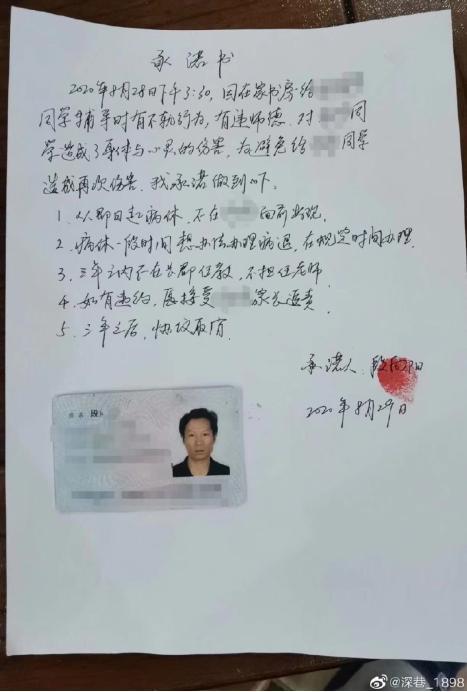 承诺书
2020年8月28日下午3:30，因在家书房给
同学辅导时有不轨行为，有违师德，对 同
学造成了身体与心灵的伤害，为避免给 同学
造成再次伤害，我承诺做到以下。
1、从即日起病休，不在 面前出现。
2、病休一段时间想办法办理病退，在规定时间办理
3、三年之内不在长郡任教，不担任老师
4、如有违约，愿接受 家长追责
5、三年之后，协议取消
承诺人：段向阳
2020年8月29日
姓名 段
@深巷_1898